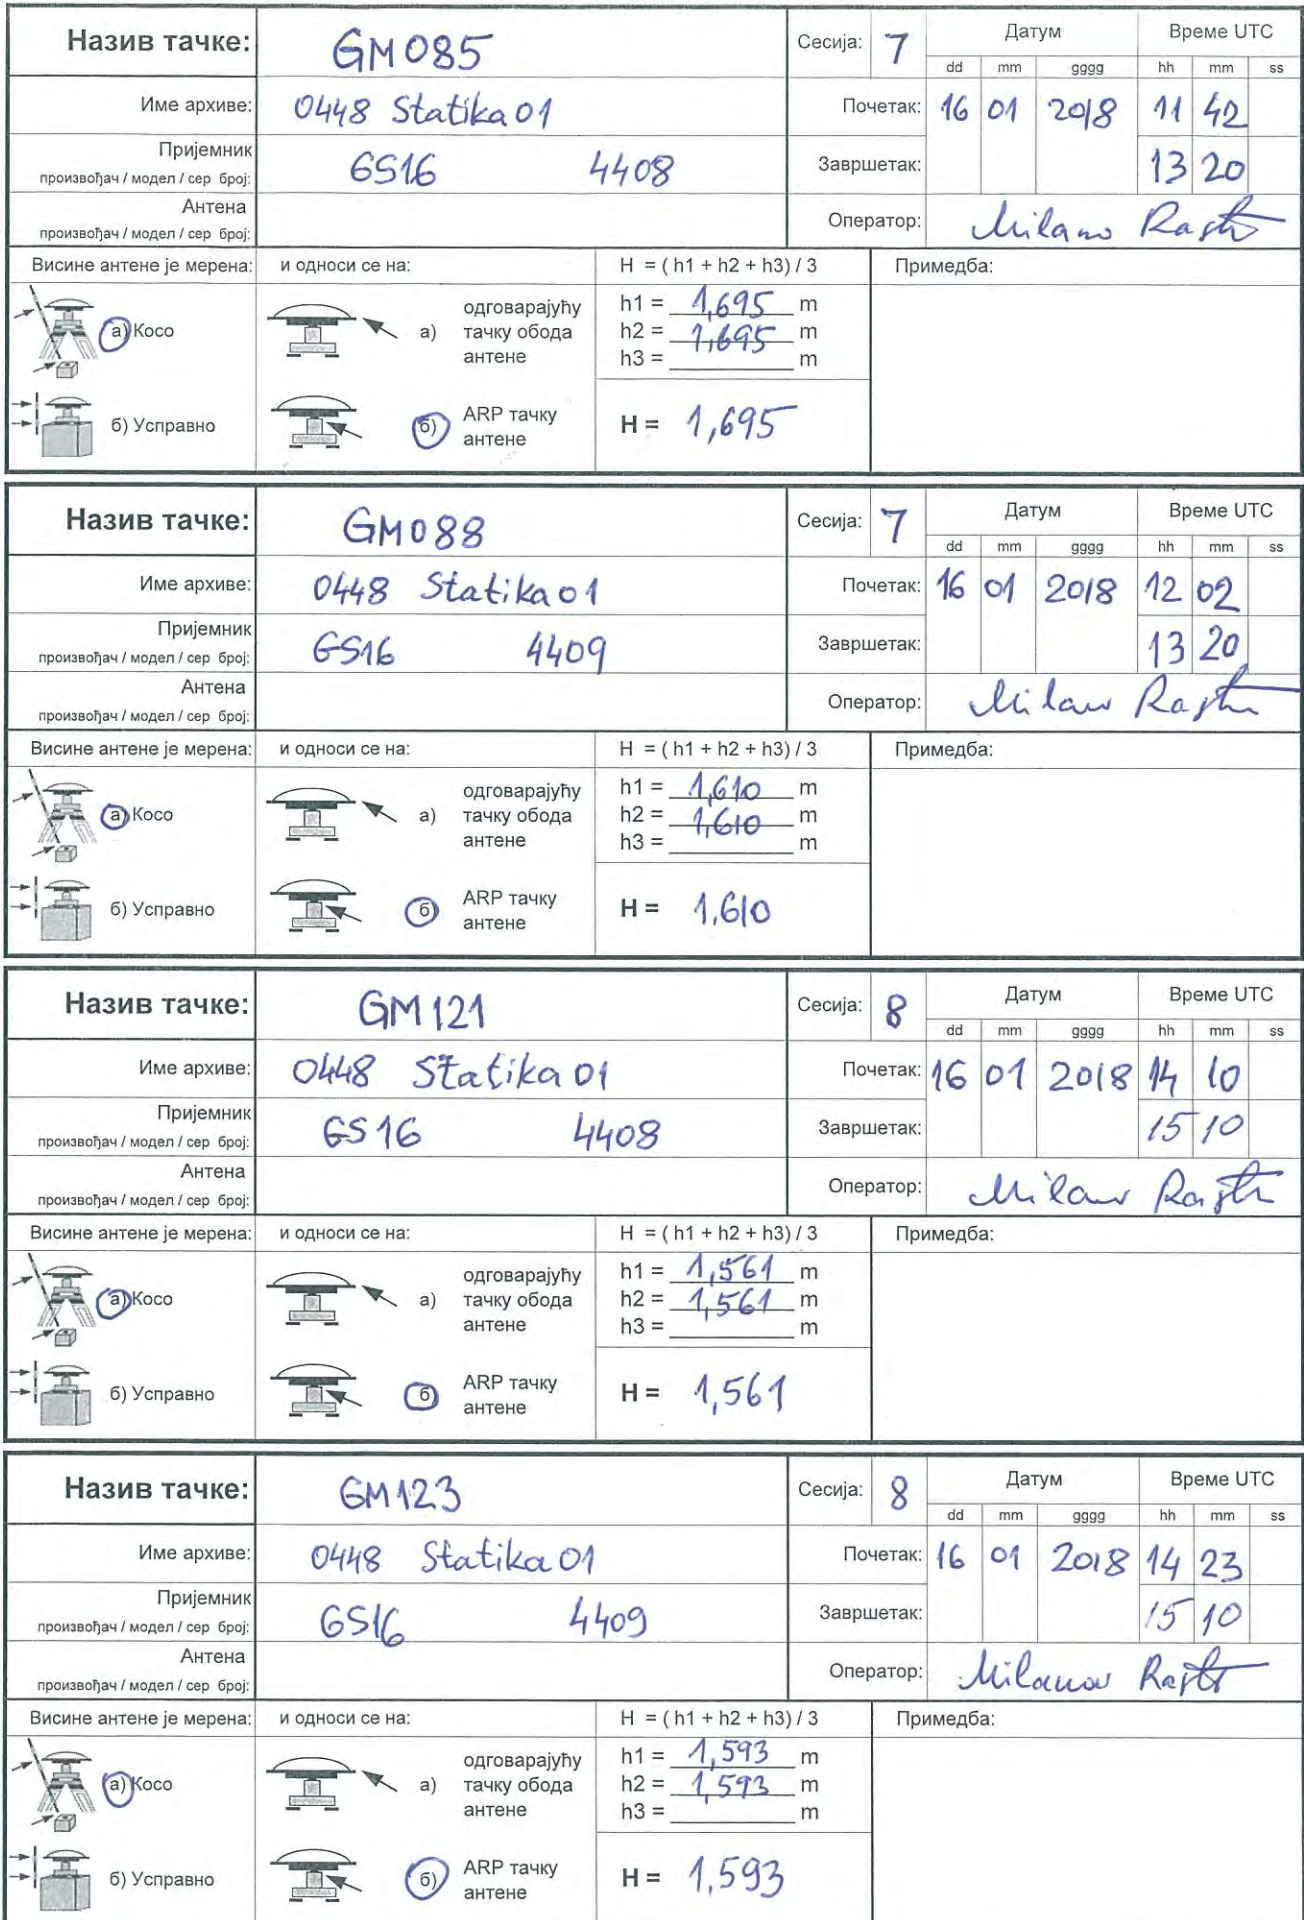 Назив тачке: GM085 Сесија: 7 Датум Време UTC
dd mm gggg hh mm ss
Име архиве: 0448 Statika 01 Почетак: 16 01 2018 11 42
Пријемник
произвођач / модел / сер број: GS16 4408 Завршетак: 13 20
Антена
произвођач / модел / сер број: Оператор:
Висине антене је мерена: и односи се на: H = ( h1 + h2 + h3) / 3 Примедба:
а) Косо а) одговарајућу тачку обода антене
h1 = 1,695 m
h2 = 1,695 m
h3 = m
б) Усправно б) ARP тачку антене H = 1,695
Назив тачке: GM088 Сесија: 7 Датум Време UTC
dd mm gggg hh mm ss
Име архиве: 0448 Statika 01 Почетак: 16 01 2018 12 02
Пријемник
произвођач / модел / сер број: GS16 4409 Завршетак: 13 20
Антена
произвођач / модел / сер број: Оператор:
Висине антене је мерена: и односи се на: H = ( h1 + h2 + h3) / 3 Примедба:
а) Косо а) одговарајућу тачку обода антене
h1 = 1,610 m
h2 = 1,610 m
h3 = m
б) Усправно б) ARP тачку антене H = 1,610
Назив тачке: GM121 Сесија: 8 Датум Време UTC
dd mm gggg hh mm ss
Име архиве: 0448 Statika 01 Почетак: 16 01 2018 14 10
Пријемник
произвођач / модел / сер број: GS16 4408 Завршетак: 15 10
Антена
произвођач / модел / сер број: Оператор:
Висине антене је мерена: и односи се на: H = ( h1 + h2 + h3) / 3 Примедба:
а) Косо а) одговарајућу тачку обода антене
h1 = 1,561 m
h2 = 1,561 m
h3 = m
б) Усправно б) ARP тачку антене H = 1,561
Назив тачке: GM123 Сесија: 8 Датум Време UTC
dd mm gggg hh mm ss
Име архиве: 0448 Statika 01 Почетак: 16 01 2018 14 23
Пријемник
произвођач / модел / сер број: GS16 4409 Завршетак: 15 10
Антена
произвођач / модел / сер број: Оператор:
Висине антене је мерена: и односи се на: H = ( h1 + h2 + h3) / 3 Примедба:
а) Косо а) одговарајућу тачку обода антене
h1 = 1,593 m
h2 = 1,593 m
h3 = m
б) Усправно б) ARP тачку антене H = 1,593